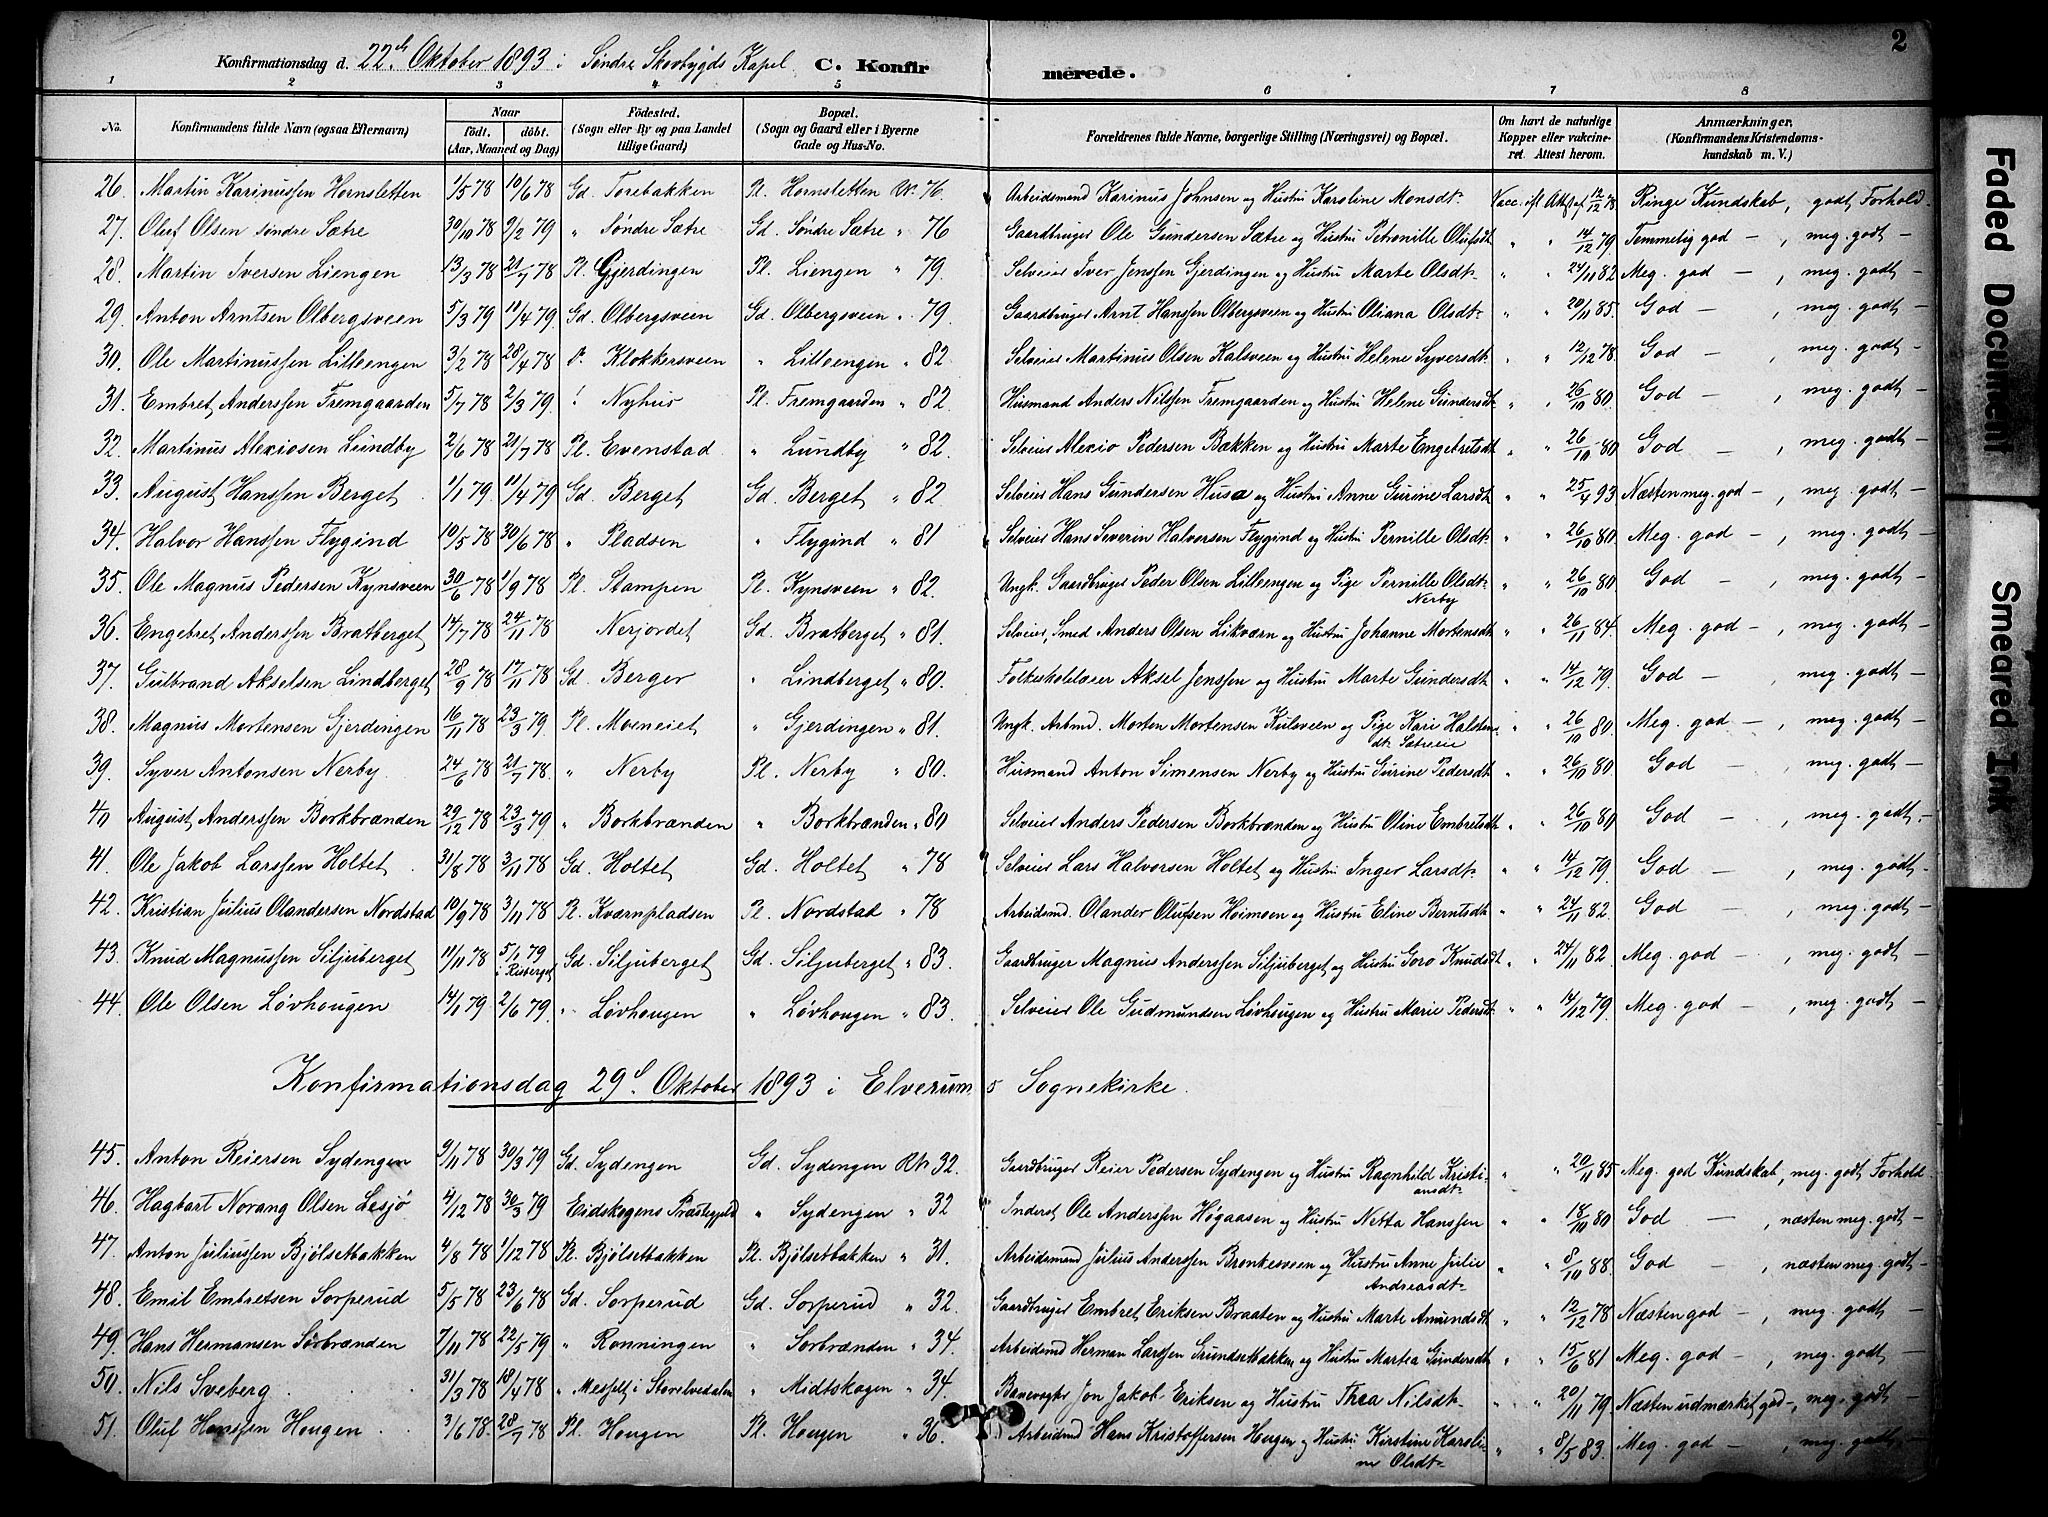 2
Konfirmationsdag d. 22de Oktober 1893 i Søndre Skovbygds Kapel. C. Konfirmerede.
1 2 3 4 5 6 7 8
No. Konfirmandens fulde Navn (ogsaa Efternavn) Naar födt. döbt. (Aar, Maaned og Dag) Födested. (Sogn eller By og paa Landet tillige Gaard) Bopæl. (Sogn og Gaard eller i Byerne Gade og Hus-No. Forældrenes fulde Navne, borgerlige Stilling (Næringsvei) og Bopæl. Om havt de naturlige Kopper eller vakcineret. Attest herom. Anmærkninger. (Konfirmandens Kristendomskundskab m. V.)
26. Martin Karinussen Hornsletten 1/5 78 10/6 78 Gd. Torebakken Pl. Hornsletten Rk. 76. Arbeidsmand Karinus Johnsen og Hustru Karoline Monsdt. Vacc. eft. Attest af 12/12 78. Ringe Kundskab, godt Forhold
27. Oluf Olsen søndre Sætre 30/10 78 9/2 79 " Søndre Sætre Gd. Søndre Sætre " 76 Gaardbruger Ole Gundersen Sætre og Hustru Petronille Olufsdt. " " 14/12 79 Temmelig god — , meg. godt —
28. Martin Iversen Liengen 13/3 78 21/7 78 Pl. Gjerdingen Pl. Liengen " 79. Selveier Iver Jenssen Gjerdingen og Hustru Marte Olsdt. " " 24/11 82 Meg. god — , meg. godt —
29. Anton Arntsen Olbergsveen 5/3 79 11/4 79. Gd. Olbergsveen Gd. Olbergsveen " 79. Gaardbruger Arnt Hanssen Olbergsveen og Hustru Oliana Olsdt. " " 20/11 85. God — , meg. godt —
30. Ole Martinussen Lilleengen 3/2 78 28/4 78 Klokkersveen " Lilleengen " 82 Selveier Martinus Olsen Kalsveen og Hustru Helene Syversdt. " " 12/12 78. God — , meg. godt —
31. Embret Anderssen Fremgaarden 5/7 78 2/3 79. Nyhus Pl. Fremgaarden " 82. Husmand Anders Nilssen Fremgaarden og Hustru Helene Gundersdt. " " 26/10 80. God — , meg. godt —
32. Martinus Alexiosen Lundby 2/6 78 21/7 78 Pl. Evenstad " Lundby " 82. Selveier Alexio Pedersen Bækken og Hustru Marte Engebretsdt. " " 26/10 80 God — , meg. godt —
33. August Hanssen Berget 1/1 79. 11/4 79 Gd. Berget Gd. Berget " 82 Selveier Hans Gundersen Husa og Hustru Anne Gurine Larsdt. " " 25/4 93 Næsten meg. god — , meg. godt —
34. Halvor Hanssen Flygind 10/5 78 30/6 78 " Pladsen " Flygind " 81 Selveier Hans Severin Halvorsen Flygind og Hustru Pernille Olsdt. " " 26/10 80. Meg. god — , meg. godt —
35. Ole Magnus Pedersen Kynsveen 30/6 78 1/9 78 Pl. Stampen Pl. Kynsveen " 82. Ungk. Gaardbruger Peder Olsen Lilleengen og Pige Pernille Olsdt. Nerby " " 26/10 80 God — , meg. godt —
36. Engebret Anderssen Bratberget 14/7 78 24/11 78 Nerjordet Gd. Bratberget " 81. Selveier, Smed Anders Olsen Likværn og Hustru Johanne Mortensdt. " " 26/11 84. Meg. god — , meg. godt —
37. Gulbrand Akselsen Lindberget 28/9 78 17/11 78 Gd. Berger " Lindberget " 80. Folkeskolelærer Aksel Jenssen og Hustru Marte Gundersdt. " " 14/12 79. God — , meg. godt —
38. Magnus Mortensen Gjerdingen 16/11 78 23/3 79. Pl. Moeneiet " Gjerdingen " 81. Ungk. Arbmd. Morten Mortensen Kulsveen og Pige Kari Halstensdt. Sætreeie " " 26/10 80. Meg. god — , meg. godt —
39. Syver Antonsen Nerby. 24/6 78 21/7 78. " Nerby Pl. Nerby " 80. Husmand Anton Simensen Nerby og Hustru Gurine Pedersdt. " " 26/10 80. God — , meg. godt —
40 August Anderssen Borkbrænden 29/12 78 23/3 79 " Borkbrænden " Borkbrænden " 80 Selveier Anders Pedersen Borkbrænden og Hustru Oline Embretsdt. " " 26/10 80 God — , meg. godt —
41. Ole Jakob Larssen Holtet 31/8 78 3/11 78 Gd. Holtet Gd. Holtet " 78 Selveier Lars Halvorsen Holtet og Hustru Inger Larsdt. " " 14/12 79. God — , meg. godt —
42. Kristian Julius Olandersen Nordstad 10/9 78 3/11 78 Pl. Kværnpladsen Pl. Nordstad " 78 Arbeidsmd. Olander Olufsen Hoimoen og Hustru Eline Berntsdt. " " 24/11 82. God — , meg. godt —
43. Knud Magnussen Siljuberget 11/11 78 5/1 79 i Risberget Gd. Siljuberget Gd. Siljuberget " 83. Gaardbruger Magnus Anderssen Siljuberget og Hustru Goro Knudsdt. " " 24/11 82 Meg. god — , meg. godt —
44. Ole Olsen Løvhougen 14/1 79 2/6 79. " Løvhougen " Løvhougen " 83. Selveier Ole Gudmundsen Løvhougen og Hustru Marie Pedersdt. " " 14/12 79. Meg. god — , meg. godt —
Konfirmationsdag 29de Oktober 1893 i Elverums Sognekirke.
45. Anton Reiersen Sydengen 9/11 78 30/3 79 Gd. Sydengen Gd. Sydengen Rk. 32. Gaardbruger Reier Pedersen Sydengen og Hustru Ragnhild Kristiansdt. " " 20/11 85 Meg. god Kundskab, meg. godt Forhold
46. Hagbart Norang Olsen Lesjø 4/12 78 30/3 79 Eidskogens Præstegjeld " Sydengen " 32 Inderst Ole Anderssen Høgaasen og Hustru Netta Hanssen " " 18/10 80 God — , næsten meg. godt —
47. Anton Juliussen Bjølsetbakken 4/8 78 1/12 78 Pl. Bjølsetbakken Pl. Bjølsetbakken " 31. Arbeidsmd Julius Anderssen Bronkesveen og Hustru Anne Julie Andreasdt. " " 8/10 88. God — , næsten meg. godt —
48. Emil Embretsen Sorperud 5/5 78 23/6 78 Gd. Sorperud Gd. Sorperud " 32. Gaardbruger Embret Eriksen Braaten og Hustru Marte Amundsdt. " " 12/12 78 Næsten god — , meg. godt —
49. Hans Hermansen Sorbrænden 7/11 78 22/5 79 " Ronningen " Sorbrænden " 34. Arbeidsmd Herman Larssen Grundsetbakken og Hustru Martea Gundersdt. " " 15/6 81 Meg. god — , meg. godt —
50. Nils Sveberg. 31/3 78 18/4 78 " Mesfelt i Storelvedalen " Midtskogen " 34. Banevogter Jon Jakob Eriksen og Hustru Thea Nilsdt. " " 20/11 79 Næsten udmærket god —, meg. godt —
51. Oluf Hanssen Hougen 3/6 78. 28/7 78 Pl. Hougen Pl. Hougen " 36. Arbeidsmd Hans Kristoffersen Hougen og Hustru Kirstine Karoline Olsdt. " " 8/5 83. Meg. god — , meg. godt —
Faded Document
Smeared Ink